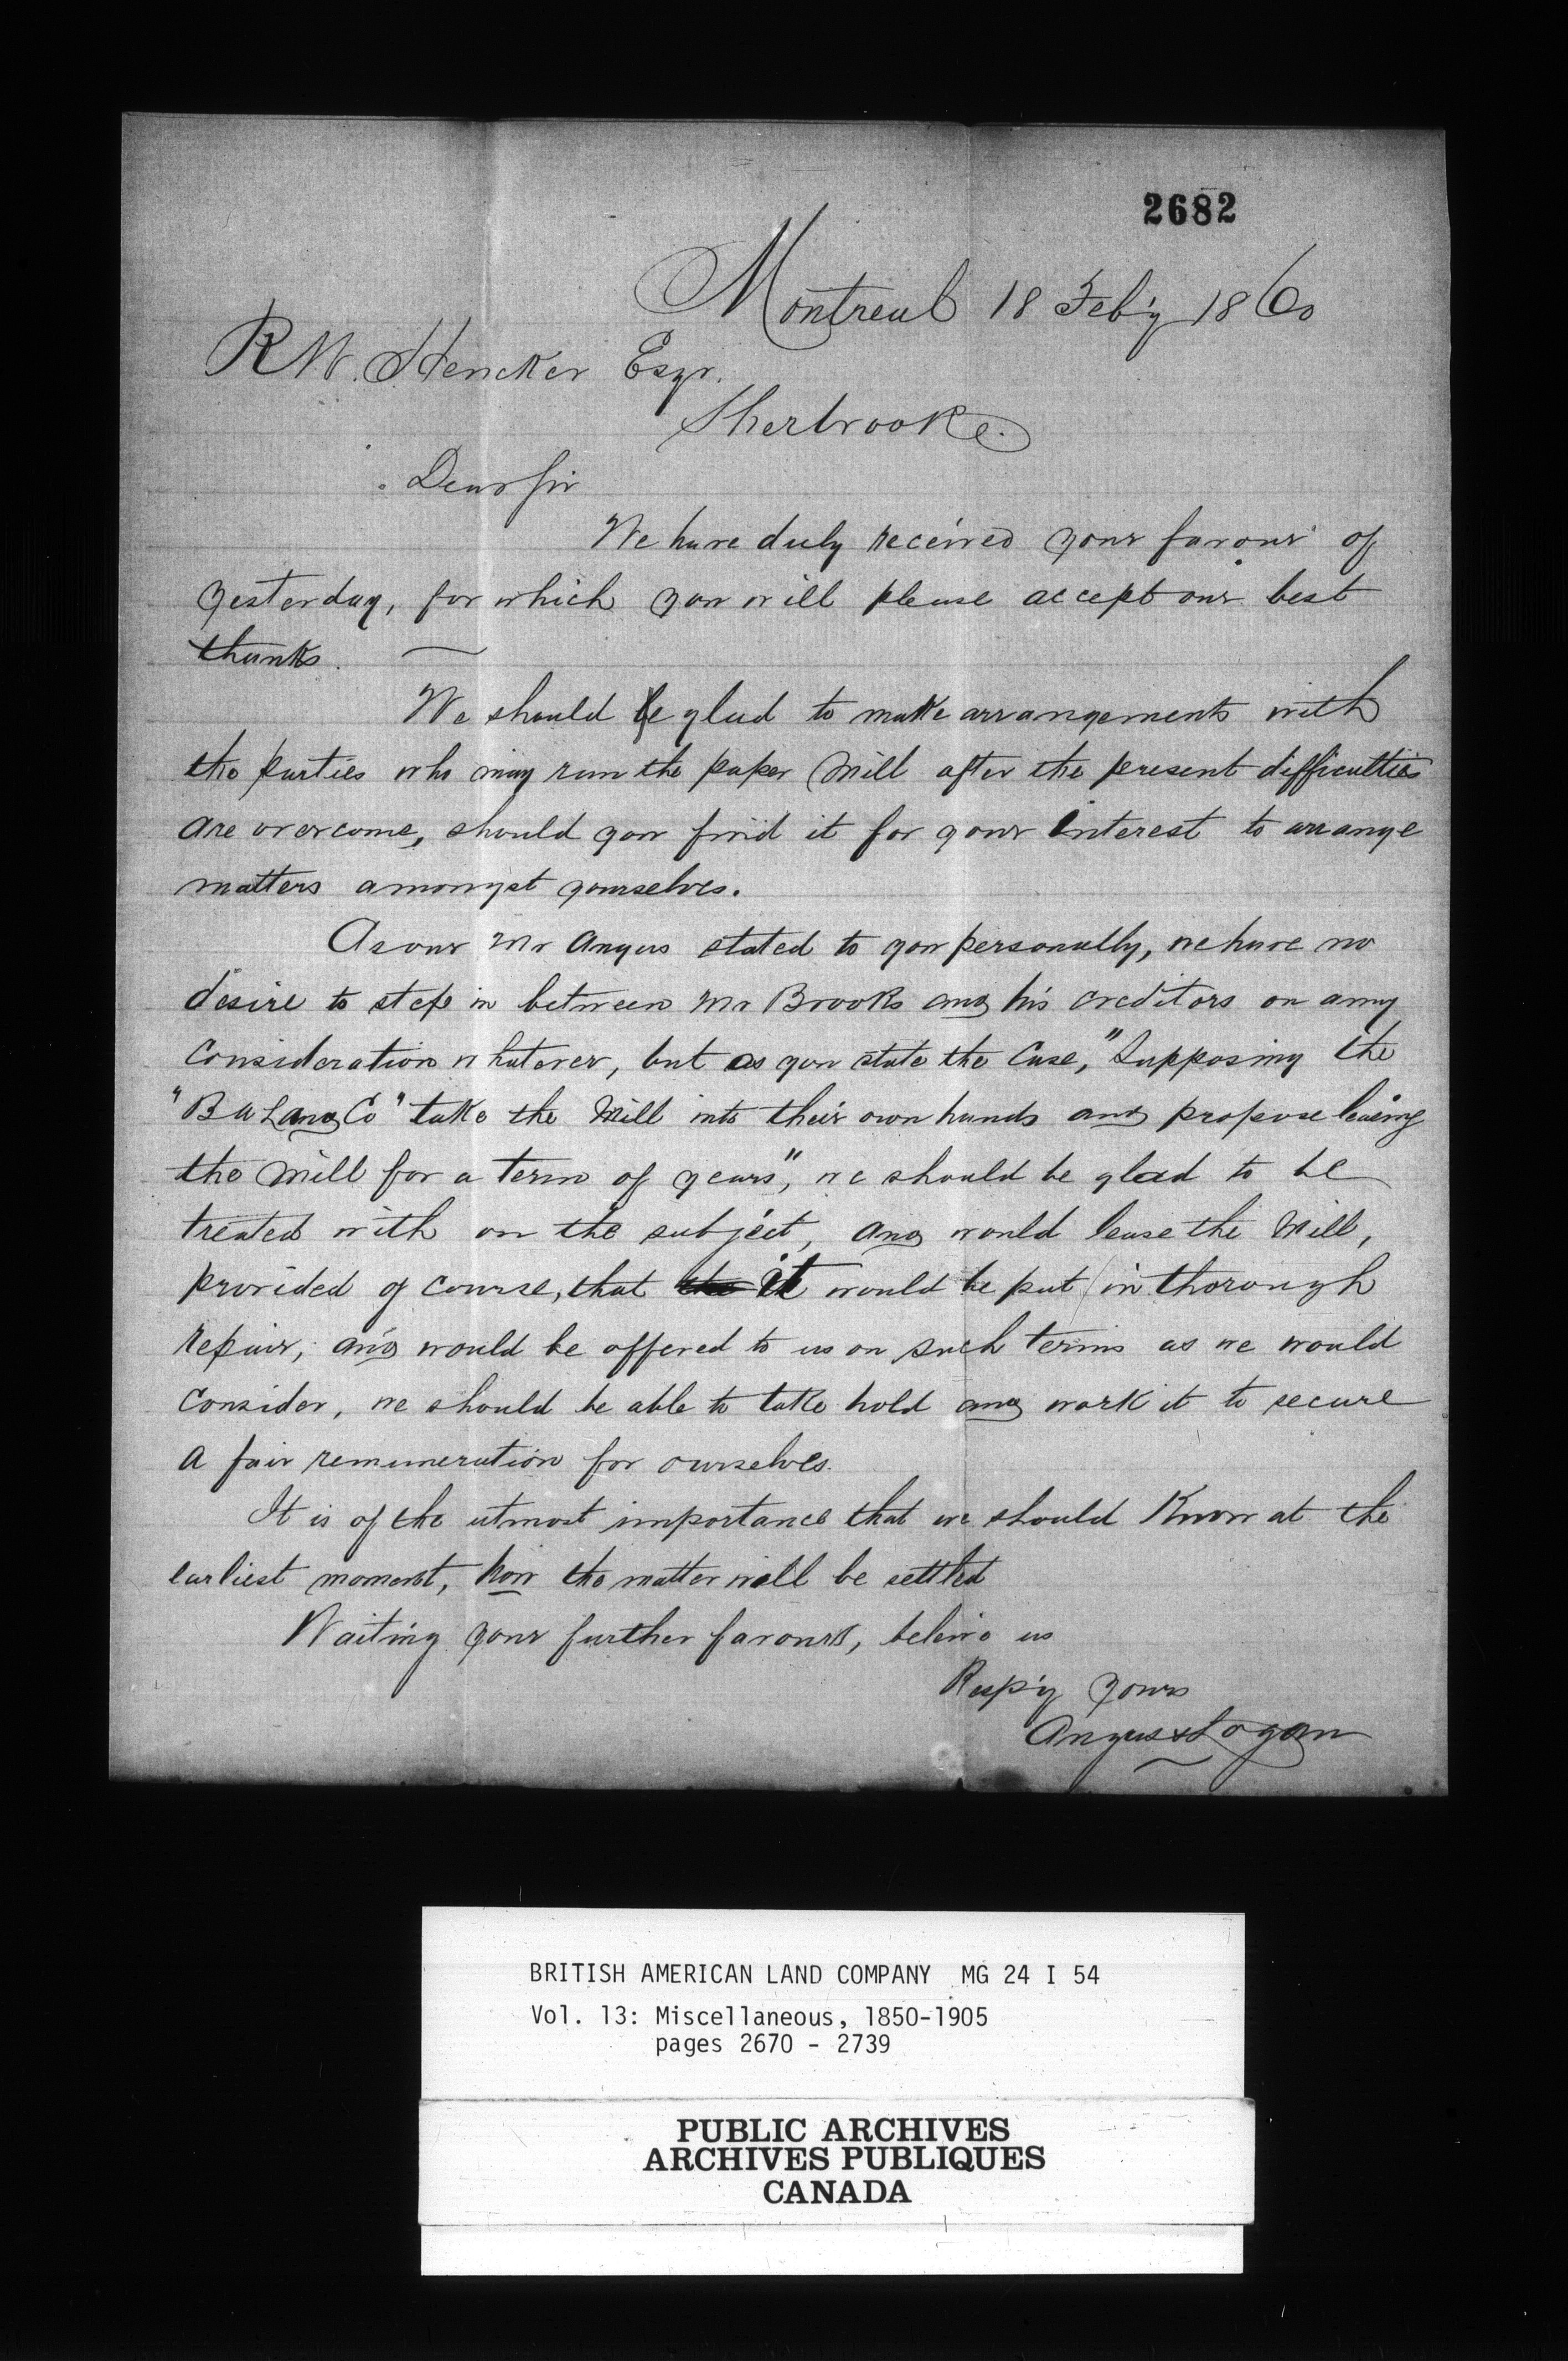 2682
Montreal 18 Feb'y 1860
R W. Hencker Esqr.
Sherbrooke.
Dear Sir
We have duly received your favour of
yesterday, for which you will please accept our best
thanks.
We should be glad to make arrangements with
the parties who may run the paper Mill after the present difficulties
are overcome, should you find it for your interest to arrange
matters amongst yourselves.
As our Mr Angus stated to you personally, we have no
desire to step in between Mr Brooks and his creditors on any
consideration whatever, but as you state the Case, "Supposing the
"B A Land Co" take the Mill into their own hands and propose leasing
the Mill for a term of years", we should be glad to be
treated with on the subject, and would lease the Mill,
provided of course, that the it would be put in thorough
repair, and would be offered to us on such terms as we would
consider, we should be able to take hold and work it to secure
a fair remuneration for ourselves.
It is of the utmost importance that we should Know at the
earliest moment, how the matter will be settled
Waiting your further favours, beleive us
Resp'y yours
Angus & Logan
BRITISH AMERICAN LAND COMPANY MG 24 I 54
Vol. 13: Miscellaneous, 1850-1905
pages 2670 - 2739
PUBLIC ARCHIVES
ARCHIVES PUBLIQUES
CANADA